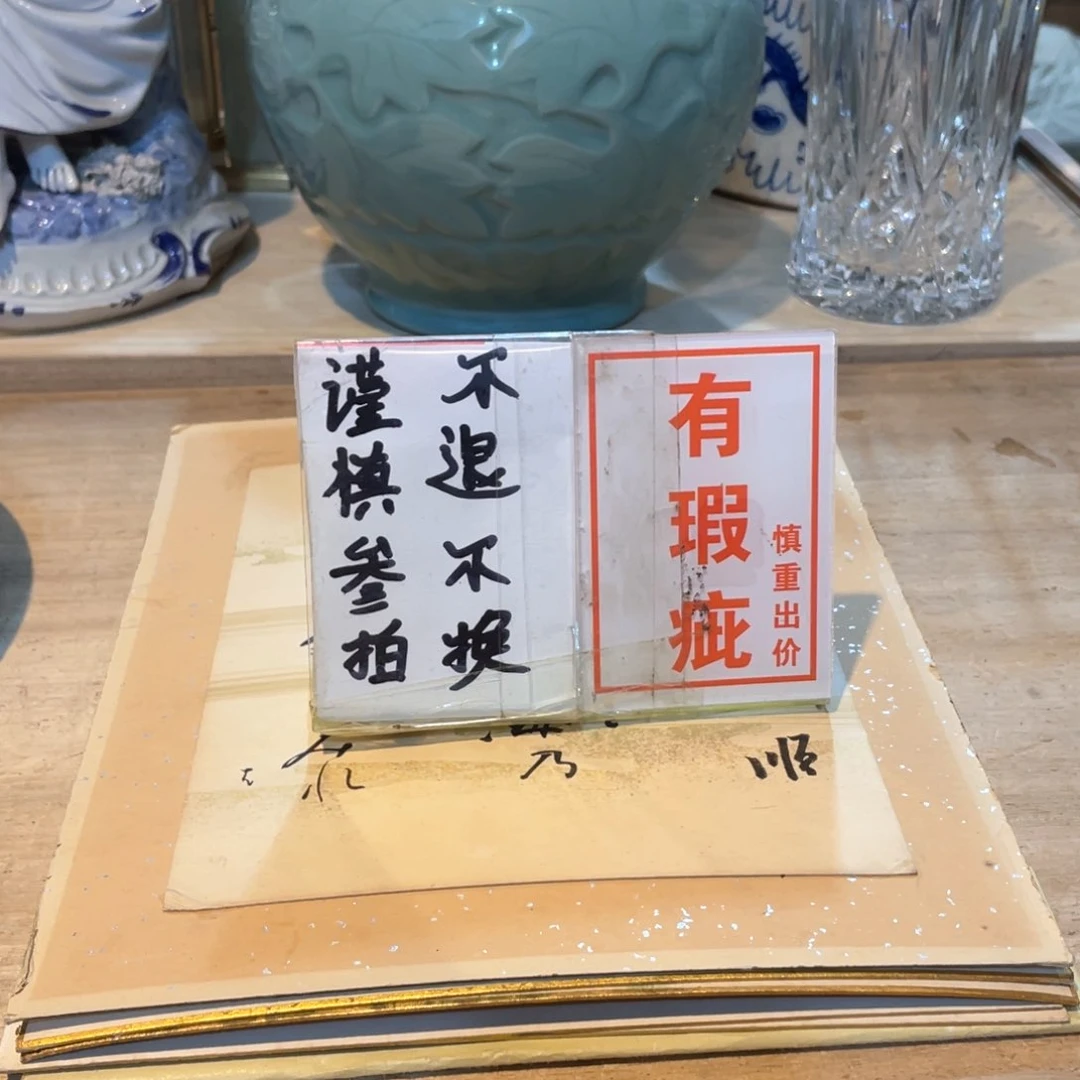 不退不换
谨慎参拍
有瑕疵
慎重出价
顺
乃